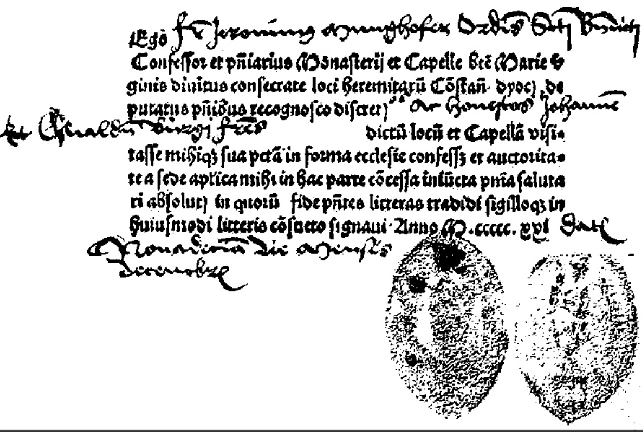 Ego fr Jeronimus Munghofer Ordis Scti Bndicti
Confessor et pñiarius Monasterij et Capelle btẽ Marie v
ginis diuinitus consecrate loci heremitarũ Cõstañ. dyoc) de
putatus pñibus recognosco discret) ac honestos Johannẽ
et Oswaldũ frẽs dictũ locũ et Capellã visi-
tasse mihiqз sua pctã in forma ecclesie confessз et auctorita-
te a sede aplica mihi in hac parte cõcessa iniũcta pñia saluta
ri absolut) in quorũ fidẽ pñtes litteras tradidi sigilloqз in
huiusmodi litteris cõsueto signaui. Anno M.ccccc.xxi Dat
Nonadecima die Mensis
decembris